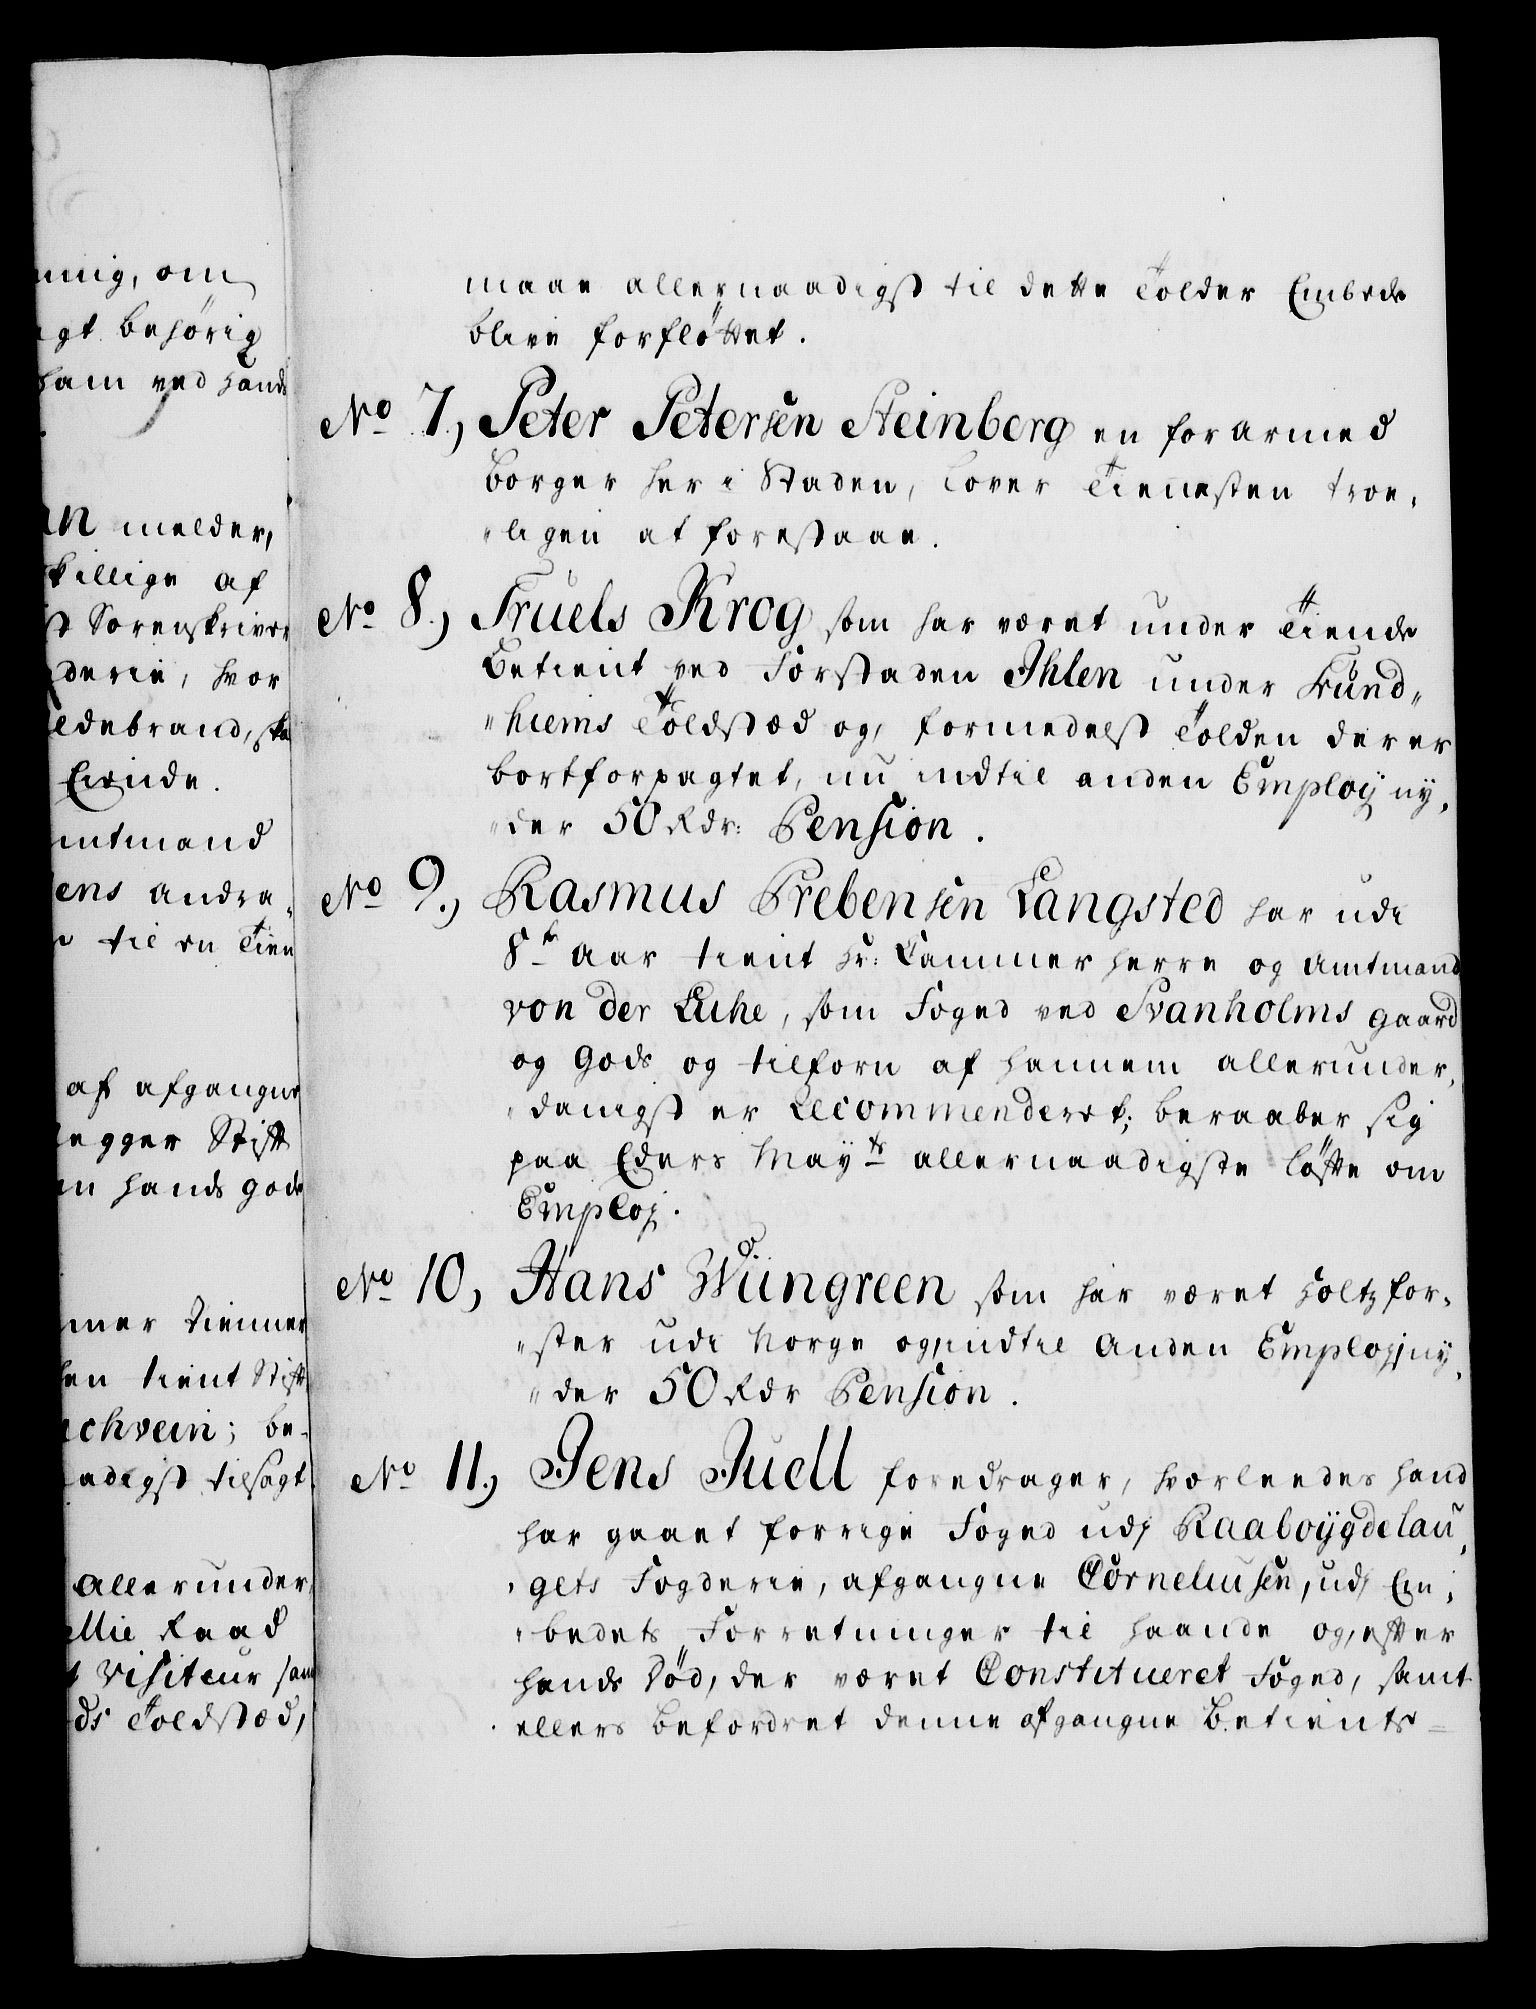 unig, om
agt behörig
ham ved hands
an melder,
skillige af
st Sorenskriver
gderie, hvor
eldebrand, ska
Eiende.
amtmand
iens andra„
til en Tien
af afgangne
legger Stift
en hands gods
mer Tienner
hen tient Stift
achvein; be„
adigst tilsagt
allerunder„
ellie Raad
t visiteur sam
ds Toldstæd,
maae allernaadigst til dette Tolder Embede
blive forfløttet.
No 7, Peter Petersen Steinberg en forarmed
borger her i Staden, lover Tienesten troe„
„ligen at forestaae.
No 8, Truels Krog som har været under Tiende
betient ved Forstaden Ihlen under Trund„
„hiems Toldstæd og, formedelst Tolden der er
bortforpagtet, nu indtil anden Employ ny„
„der 50 Rdr: Pension.
No 9, Rasmus Prebensen Langsted har udi
8te aar tient Hr: Cammerherre og Amtmand
von der Lühe, som Foged ved Svanholms gaard
og Gods og tilforn af hannem allerunder„
„danigst er Recommenderet; beraaber sig
paa Eders Mayts allernaadigste løfte om
Employ.
No 10, Hans Wüngreen som har været Holtzfor„
„ster udi Norge og, indtil anden Employ, ny„
„der 50 Rdr Pension.
No 11, Jens Juell foredrager, hvorleedes hand
har gaaet forrige Foged udj Raaboygdelau„
„gets Fogderie, afgangne Corneliusen, udj Em„
„bedets Forretninger til haande og, efter
hands Død, der været Constitueret Foged, samt
ellers befordret denne afgangne Betients